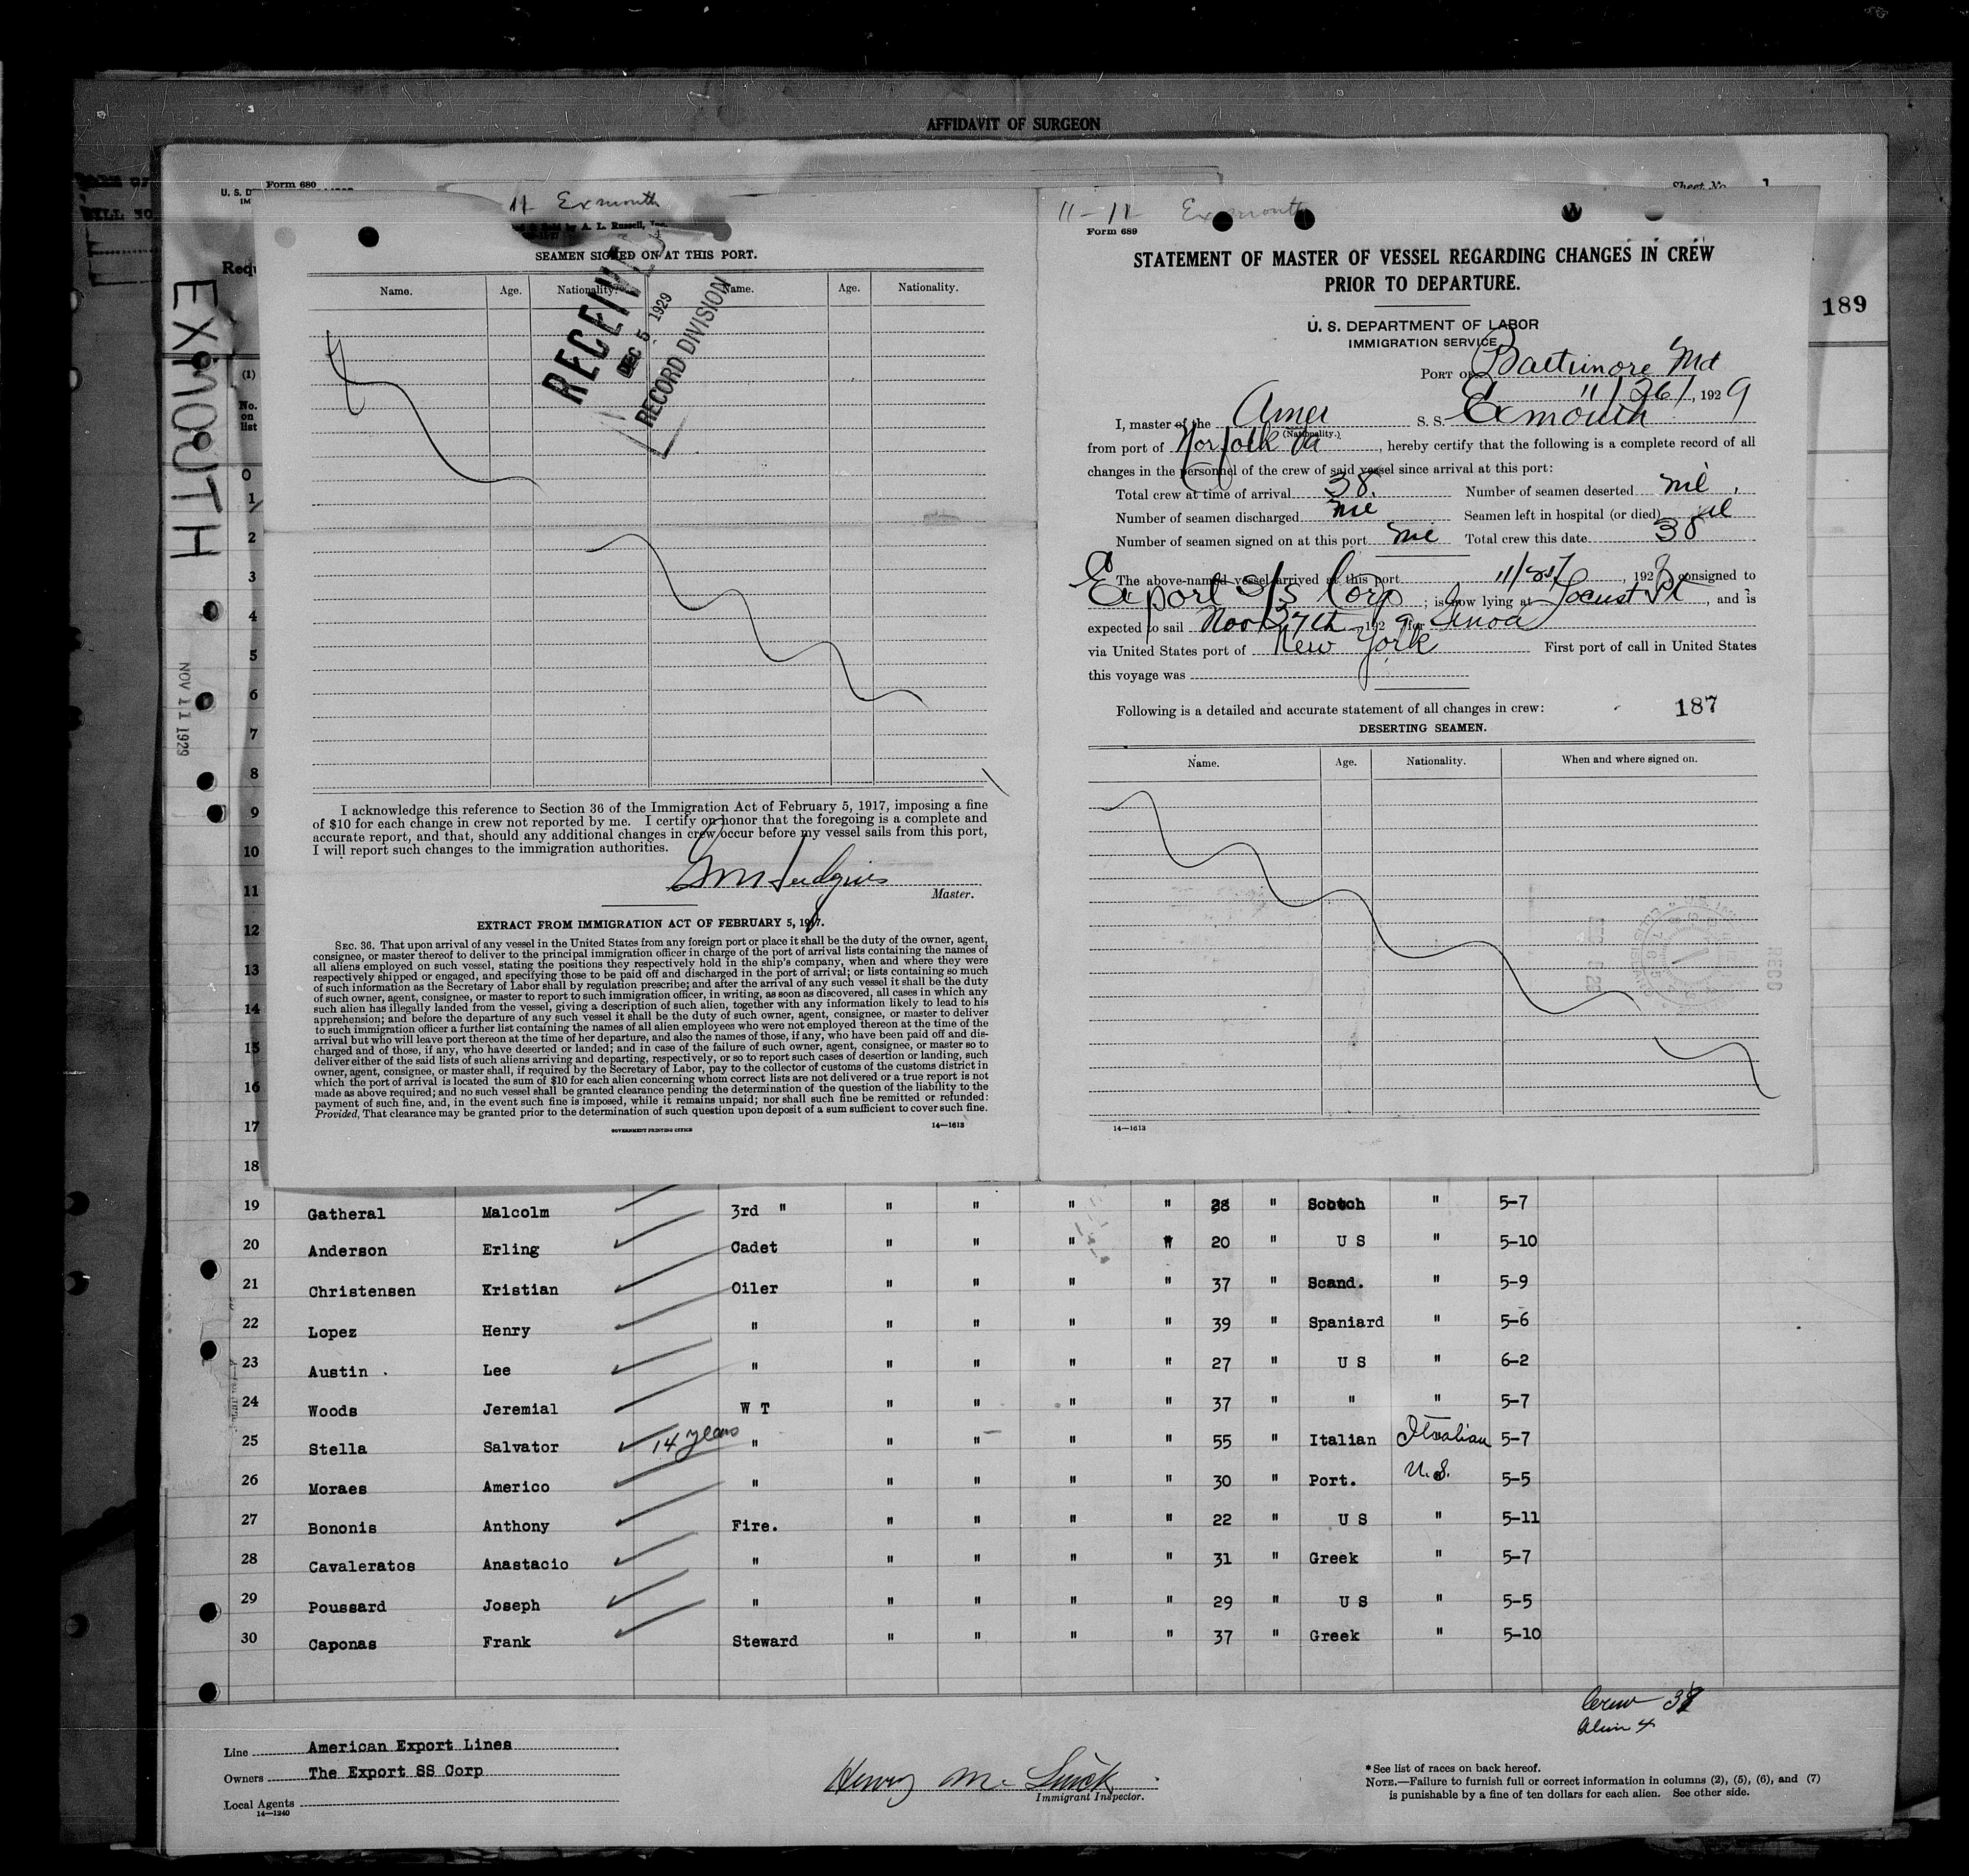 AFFIDAVIT OF SURGEON
Form 680
U. S. D
IM
Sheet No. 1
Requ
189
EXMOUTH
NOV 11 1929
(1)
No.
on
list
11 Exmouth
by A. L. Russell, Inc.
SEAMEN SIGNED ON AT THIS PORT.
Name. Age. Nationality. Name. Age. Nationality.
RECEIVED
DEC 5 1929
RECORD DIVISION
I acknowledge this reference to Section 36 of the Immigration Act of February 5, 1917, imposing a fine
of $10 for each change in crew not reported by me. I certify on honor that the foregoing is a complete and
accurate report, and that, should any additional changes in crew occur before my vessel sails from this port,
I will report such changes to the immigration authorities.
Master.
EXTRACT FROM IMMIGRATION ACT OF FEBRUARY 5, 1917.
SEC. 36. That upon arrival of any vessel in the United States from any foreign port or place it shall be the duty of the owner, agent,
consignee, or master thereof to deliver to the principal immigration officer in charge of the port of arrival lists containing the names of
all aliens employed on such vessel, stating the positions they respectively hold in the ship's company, when and where they were
respectively shipped or engaged, and specifying those to be paid off and discharged in the port of arrival; or lists containing so much
of such information as the Secretary of Labor shall by regulation prescribe; and after the arrival of any such vessel it shall be the duty
of such owner, agent, consignee, or master to report to such immigration officer, in writing, as soon as discovered, all cases in which any
such alien has illegally landed from the vessel, giving a description of such alien, together with any information likely to lead to his
apprehension; and before the departure of any such vessel it shall be the duty of such owner, agent, consignee, or master to deliver
to such immigration officer a further list containing the names of all alien employees who were not employed thereon at the time of the
arrival but who will leave port thereon at the time of her departure, and also the names of those, if any, who have been paid off and dis-
charged and of those, if any, who have deserted or landed; and in case of the failure of such owner, agent, consignee, or master so to
deliver either of the said lists of such aliens arriving and departing, respectively, or so to report such cases of desertion or landing, such
owner, agent, consignee, or master shall, if required by the Secretary of Labor, pay to the collector of customs of the customs district in
which the port of arrival is located the sum of $10 for each alien concerning whom correct lists are not delivered or a true report is not
made as above required; and no such vessel shall be granted clearance pending the determination of the question of the liability to the
payment of such fine, and, in the event such fine is imposed, while it remains unpaid; nor shall such fine be remitted or refunded:
Provided, That clearance may be granted prior to the determination of such question upon deposit of a sum sufficient to cover such fine.
GOVERNMENT PRINTING OFFICE 14—1613
11-11 Exmouth
Form 689
STATEMENT OF MASTER OF VESSEL REGARDING CHANGES IN CREW
PRIOR TO DEPARTURE.
U. S. DEPARTMENT OF LABOR
IMMIGRATION SERVICE
PORT OF Baltimore Md
11/26/, 1929
I, master of the Amer S. S. Exmouth
(Nationality.)
from port of Norfolk Va, hereby certify that the following is a complete record of all
changes in the personnel of the crew of said vessel since arrival at this port:
Total crew at time of arrival 38. Number of seamen deserted nil.
Number of seamen discharged nil Seamen left in hospital (or died) nil
Number of seamen signed on at this port nil Total crew this date 38
The above-named vessel arrived at this port 11/25/, 192 consigned to
Export S/S Corp; is now lying at Locust Pt, and is
expected to sail Nov 27th 1929 for Genoa
via United States port of New York First port of call in United States
this voyage was
Following is a detailed and accurate statement of all changes in crew: 187
DESERTING SEAMEN.
Name. Age. Nationality. When and where signed on.
14—1613
0
1
2
3
4
5
6
7
8
9
10
11
12
13
14
15
16
17
18
19 Gatheral Malcolm 3rd " " " " " 28 " Scotch " 5-7
20 Anderson Erling Cadet " " " " 20 " U S " 5-10
21 Christensen Kristian Oiler " " " " 37 " Scand. " 5-9
22 Lopez Henry " " " " " 39 " Spaniard " 5-6
23 Austin . Lee " " " " " 27 " U S " 6-2
24 Woods Jeremial W T " " " " 37 " " " 5-7
25 Stella Salvator 14 years " " " " " 55 " Italian Italian 5-7
26 Moraes Americo " " " " " 30 " Port. U.S. 5-5
27 Bononis Anthony Fire. " " " " 22 " U S " 5-11
28 Cavaleratos Anastacio " " " " " 31 " Greek " 5-7
29 Poussard Joseph " " " " " 29 " U S " 5-5
30 Caponas Frank Steward " " " " 37 " Greek " 5-10
Crew 38
Alien 4
Line American Export Lines
Owners The Export SS Corp
Local Agents
14—1240
Henry
Immigrant Inspector.
* See list of races on back hereof.
NOTE.—Failure to furnish full or correct information in columns (2), (5), (6), and (7)
is punishable by a fine of ten dollars for each alien. See other side.